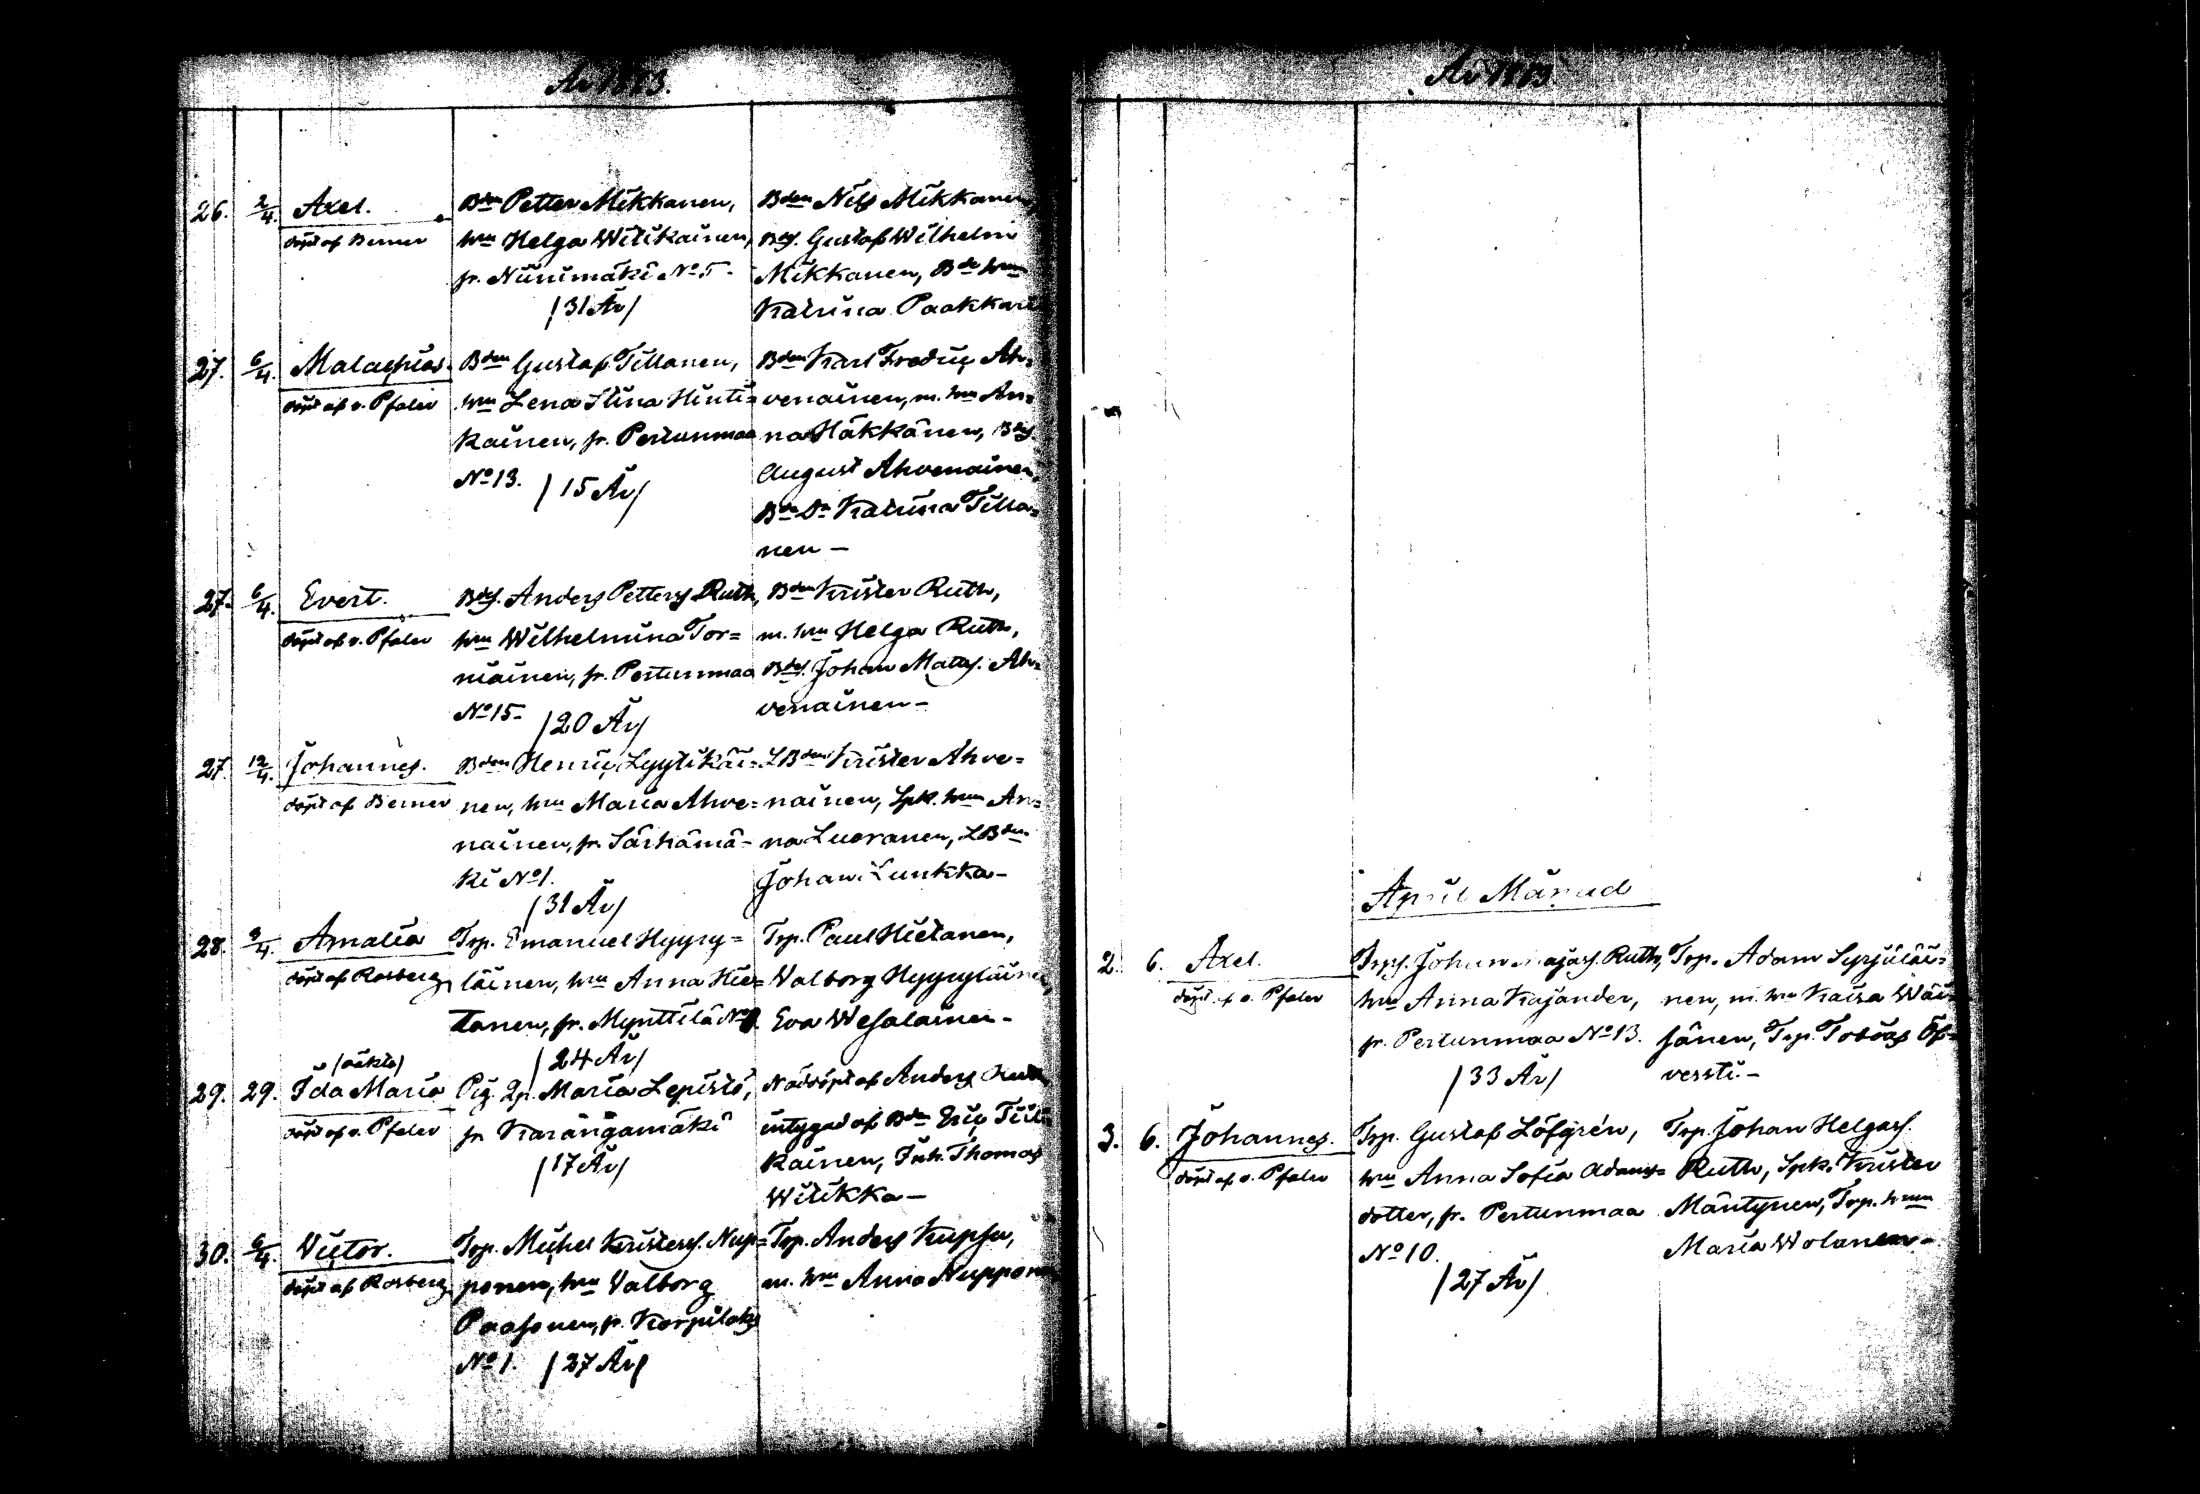 År 1873.
26. 2/4. Axel.
döpt af Berner
Bden Petter Mikkanen,
hm Helga Witikainen,
fr. Niinimäki No 5.
/31 År/
Bden Nils Mikkanen,
Bds. Gustaf Wilhelm
Mikkanen, Bde hm
Katrina Paakkari
27. 6/4. Malachias.
döpt af v. Pfaler
Bden Gustaf Tillanen,
hm Lena Stina Hinti=
kainen, fr. Pertunmaa
No 13. /15 År/
Bden Karl Fredric Ah=
venainen, m. hm An=
na Häkkänen, Bds.
August Ahvenainen,
Bde Dr Katrina Tilla=
nen –
27. 6/4. Evert.
döpt af v. Pfaler
Bds. Anders Petters. Ruth,
hm Wilhelmina Tor=
niainen, fr. Pertunmaa
No 15. /20 År/
Bden Krister Ruth,
m. hm Helga Ruth,
Bds. Johan Matts. Ah=
venainen –
27. 12/4. Johannes.
döpt af Berner
Bden Henric Lyytikäi=
nen, hm Maria Ahve=
nainen, fr. Särkämä=
ki No 1.
/31 År/
LBden Krister Ahve=
nainen, Spk. hm An=
na Luoranen, LBden
Johan Lunkka –
28. 9/4. Amalia
döpt af Rosberg
Trp. Emanuel Hyyry=
läinen, hm Anna Hie=
tanen, fr. Mynttilä
/24 År/
Trp. Paul Hietanen,
Valborg Hyyryläinen,
Eva Wesalainen –
/oäkta/
29. 29. Ida Maria
döpt af v. Pfaler
Pig. Maria Lepistö,
fr Karangamäki
/17 År/
Nöddöpt af Anders
intygad af Bden Eric Tiili=
kainen, Inh. Thomas
Witikka –
30. 6/4. Victor.
döpt af Rosberg
Trp. Michel Kristers. Nup=
ponen, hm Valborg
Paasonen, fr. Korpilaks
No 1. /27 År/
Trp. Anders Kupsu,
m. hm Anna Nupponen
År 1873.
April Månad
2. 6. Axel.
döpt af v. Pfaler
Trps. Johan Majas. Ruth,
hm Anna Kajander,
fr. Pertunmaa No 13.
/33 År/
Trp. Adam Syrjäläi=
nen, m. hm Kaisa Wäi=
sänen, Trp. Tobias Öf=
versti. –
3. 6. Johannes.
döpt af v. Pfaler
Trp. Gustaf Löfgrén,
hm Anna Sofia Adams=
dotter, fr. Pertunmaa
No 10.
/27 År/
Trp. Johan Helgas.
Ruth, Spk. Krister
Mäntynen, Trp. hm
Maria Wolanen –